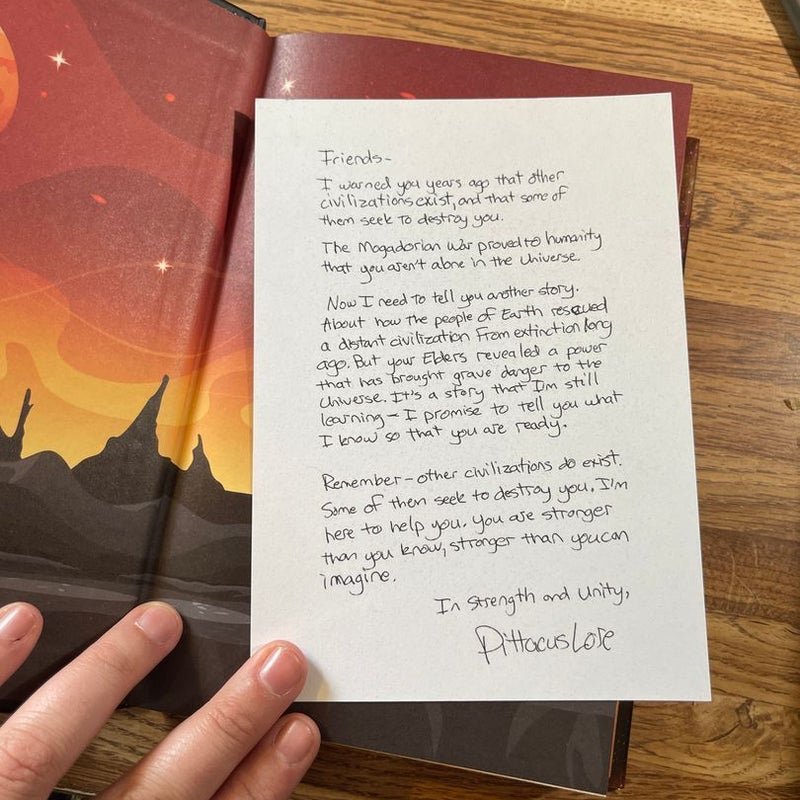 Friends-
I warned you years ago that other
civilizations exist, and that some of
them seek to destroy you.
The Mogadorian War proved to humanity
that you aren't alone in the Universe.
Now I need to tell you another story.
About how the people of Earth rescued
a distant civilization from extinction long
ago. But your Elders revealed a power
that has brought grave danger to the
Universe. It's a story that I'm still
learning - I promise to tell you what
I know so that you are ready.
Remember - other civilizations do exist.
Some of them seek to destroy you. I'm
here to help you. You are stronger
than you know, stronger than you can
imagine.
In Strength and Unity,
Pittacus Lore